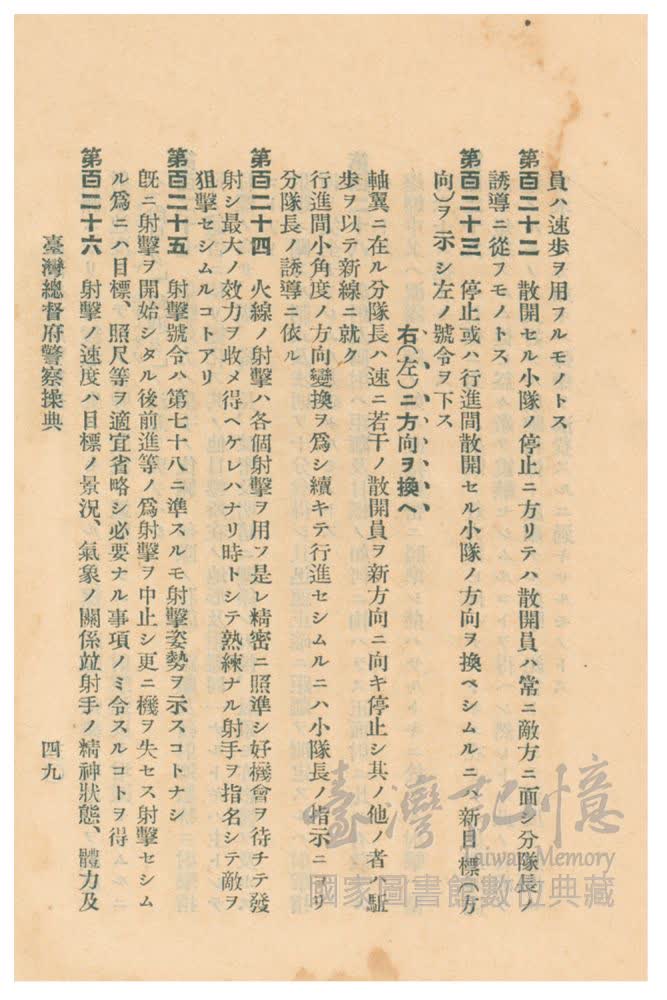 員ハ速步ヲ用フルモノトス
第百二十二　散開セル小隊ノ停止ニ方リテハ散開員ハ常ニ敵方ニ面シ分隊長ノ
誘導ニ從フモノトス
第百二十三　停止或ハ行進間散開セル小隊ノ方向ヲ換ヘシムルニハ新目標(方
向)ヲ示シ左ノ號令ヲ下ス
右(左)ニ方向ヲ換ヘ
軸翼ニ在ル分隊長ハ速ニ若干ノ散開員ヲ新方向ニ向キ停止シ其ノ他ノ者ハ駈
步ヲ以テ新線ニ就ク
行進間小角度ノ方向變換ヲ爲シ續キテ行進セシムルニハ小隊長ノ指示ニヨリ
分隊長ノ誘導ニ依ル
第百二十四　火線ノ射擊ハ各個射擊ヲ用フ是レ精密ニ照準シ好機會ヲ待チテ發
射シ最大ノ效力ヲ收メ得ヘケレハナリ時トシテ熟練ナル射手ヲ指名シテ敵ヲ
狙擊セシムルコトアリ
第百二十五　射擊號令ハ第七十八ニ準スルモ射擊姿勢ヲ示スコトナシ
旣ニ射擊ヲ開始シタル後前進等ノ爲射擊ヲ中止シ更ニ機ヲ失セス射擊セシム
ル爲ニハ目標、照尺等ヲ適宜省略シ必要ナル事項ノミ令スルコトヲ得
第百二十六　射擊ノ速度ハ目標ノ景況、氣象ノ關係竝射手ノ精神狀態、體力及
臺灣總督府警察操典　四九
臺灣記憶
Taiwan Memory
國家圖書館數位典藏